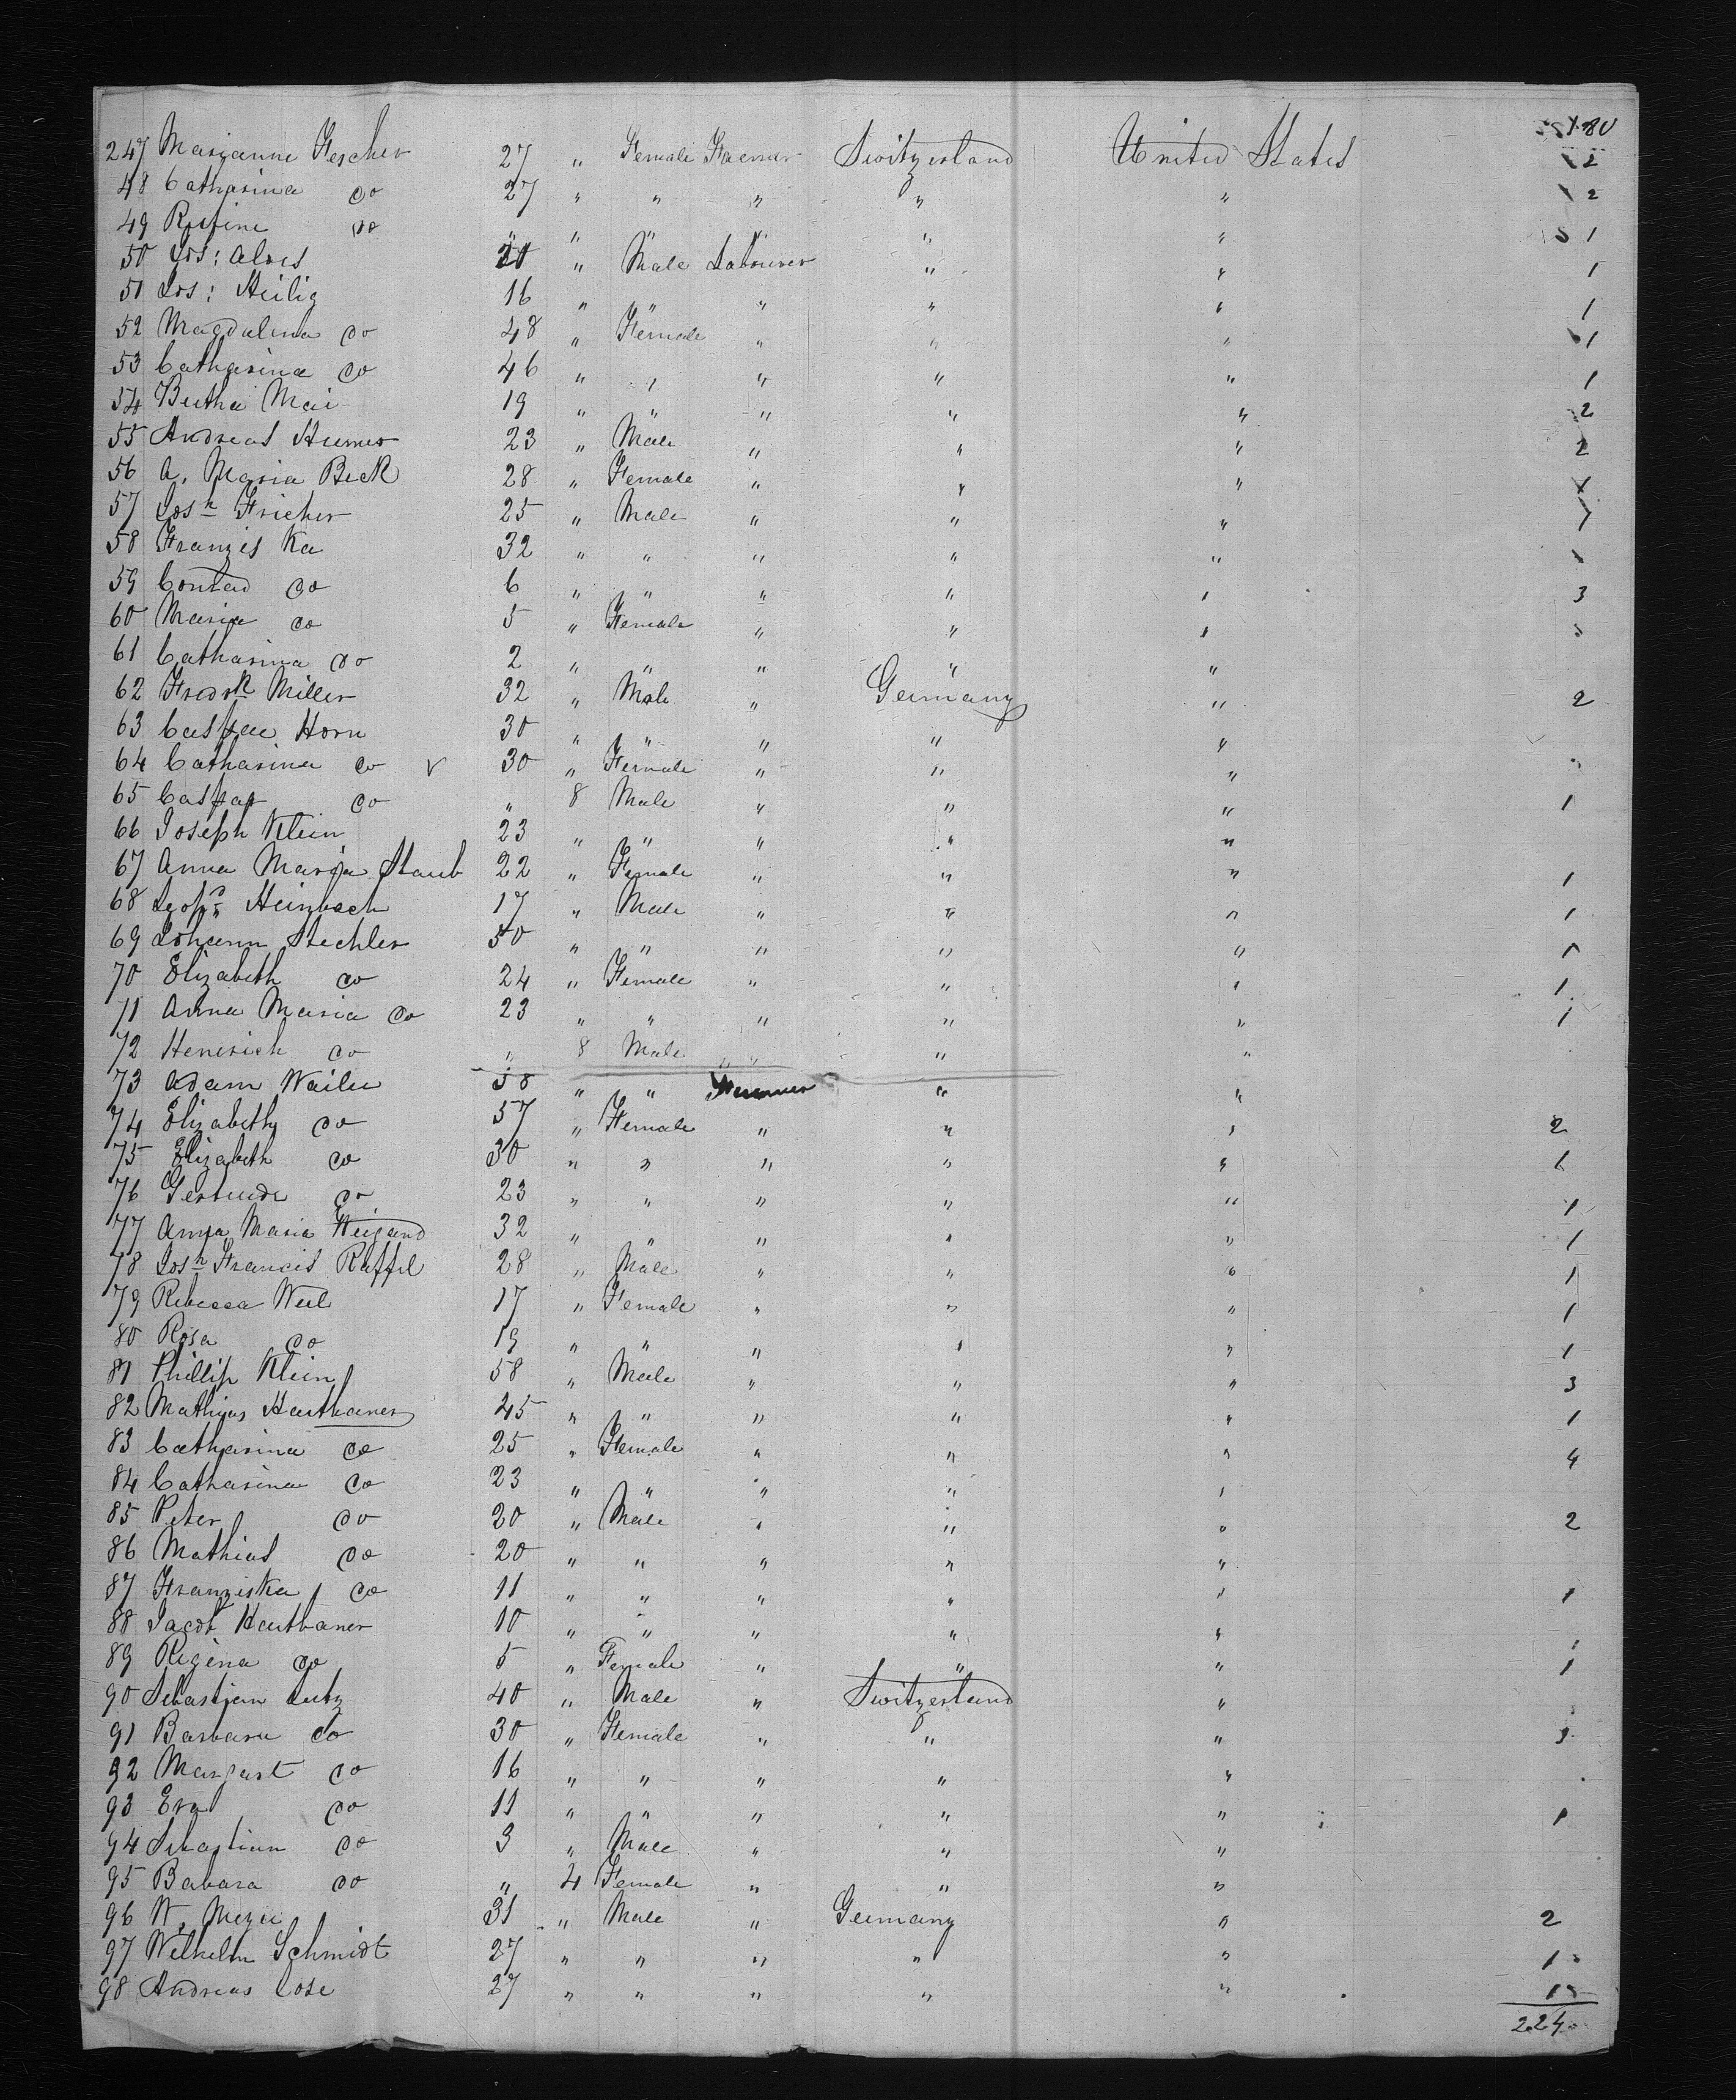 180
247 Marianne Fescher 27 " Female Farmer Switzerland United States 2
48 Catharina do 27 " " " " " 2
49 Rufine do " " " " " " 1
50 Jos: Alois 20 " Male Labourer " " 1
51 Jos: Heilig 16 " " " " " 1
52 Magdalena do 48 " Female " " " 1
53 Catharina do 46 " " " " " 1
54 Bertha Mai 19 " " " " " 2
55 Andreas Humer 23 " Male " " " 2
56 A. Maria Beck 28 " Female " " " 1
57 Josh Fricher 25 " Male " " " 1
58 Franzis Ka 32 " " " " " 1
59 Conrad do 6 " " " " " 3
60 Maria do 5 " Female " " "
61 Catharina do 2 " " " " "
62 Fredrk Miller 32 " Male " Germany " 2
63 Caspar Horn 30 " " " " "
64 Catharina do v 30 " Female " " "
65 Caspar do " 8 Male " " " 1
66 Joseph Klein 23 " " " " "
67 Anna Maria Staub 22 " Female " " " 1
68 Heinbach 17 " Male " " " 1
69 Johann Stechler 50 " " " " " 1
70 Elizabeth do 24 " Female " " " 1
71 Anna Maria do 23 " " " " " 1
72 Henerich do " 8 Male " " "
73 Adam Wailer 58 " " Farmer " "
74 Elizabeth do 57 " Female " " " 2
75 Elizabeth do 30 " " " " " 1
76 Gertrude do 23 " " " " " 1
77 Anna Maria Weigand 32 " " " " " 1
78 Josh Francis Raffel 28 " Male " " " 1
79 Rebecca Weil 17 " Female " " " 1
80 Rosa do 19 " " " " " 1
81 Phillip Klein 58 " Male " " " 3
82 Mathias Hauthaner 45 " " " " " 1
83 Catharina do 25 " Female " " " 4
84 Catharina do 23 " " " " "
85 Peter do 20 " Male " " " 2
86 Mathias do 20 " " " " "
87 Franziska do 11 " " " " " 1
88 Jacob Hauthaner 10 " " " " "
89 Regina do 5 " Female " " " 1
90 Sebastian Lutz 40 " Male " Switzerland "
91 Barbara do 30 " Female " " " 3
92 Margart do 16 " " " " "
93 Eva do 11 " " " " " 1
94 Sebastian do 3 " Male " " "
95 Babara do " 4 Female " " "
96 W. Mezer 31 " Male " Germany " 2
97 Wilhelm Schmidt 27 " " " " " 1
98 Andreas Cose 27 " " " " " 1
224